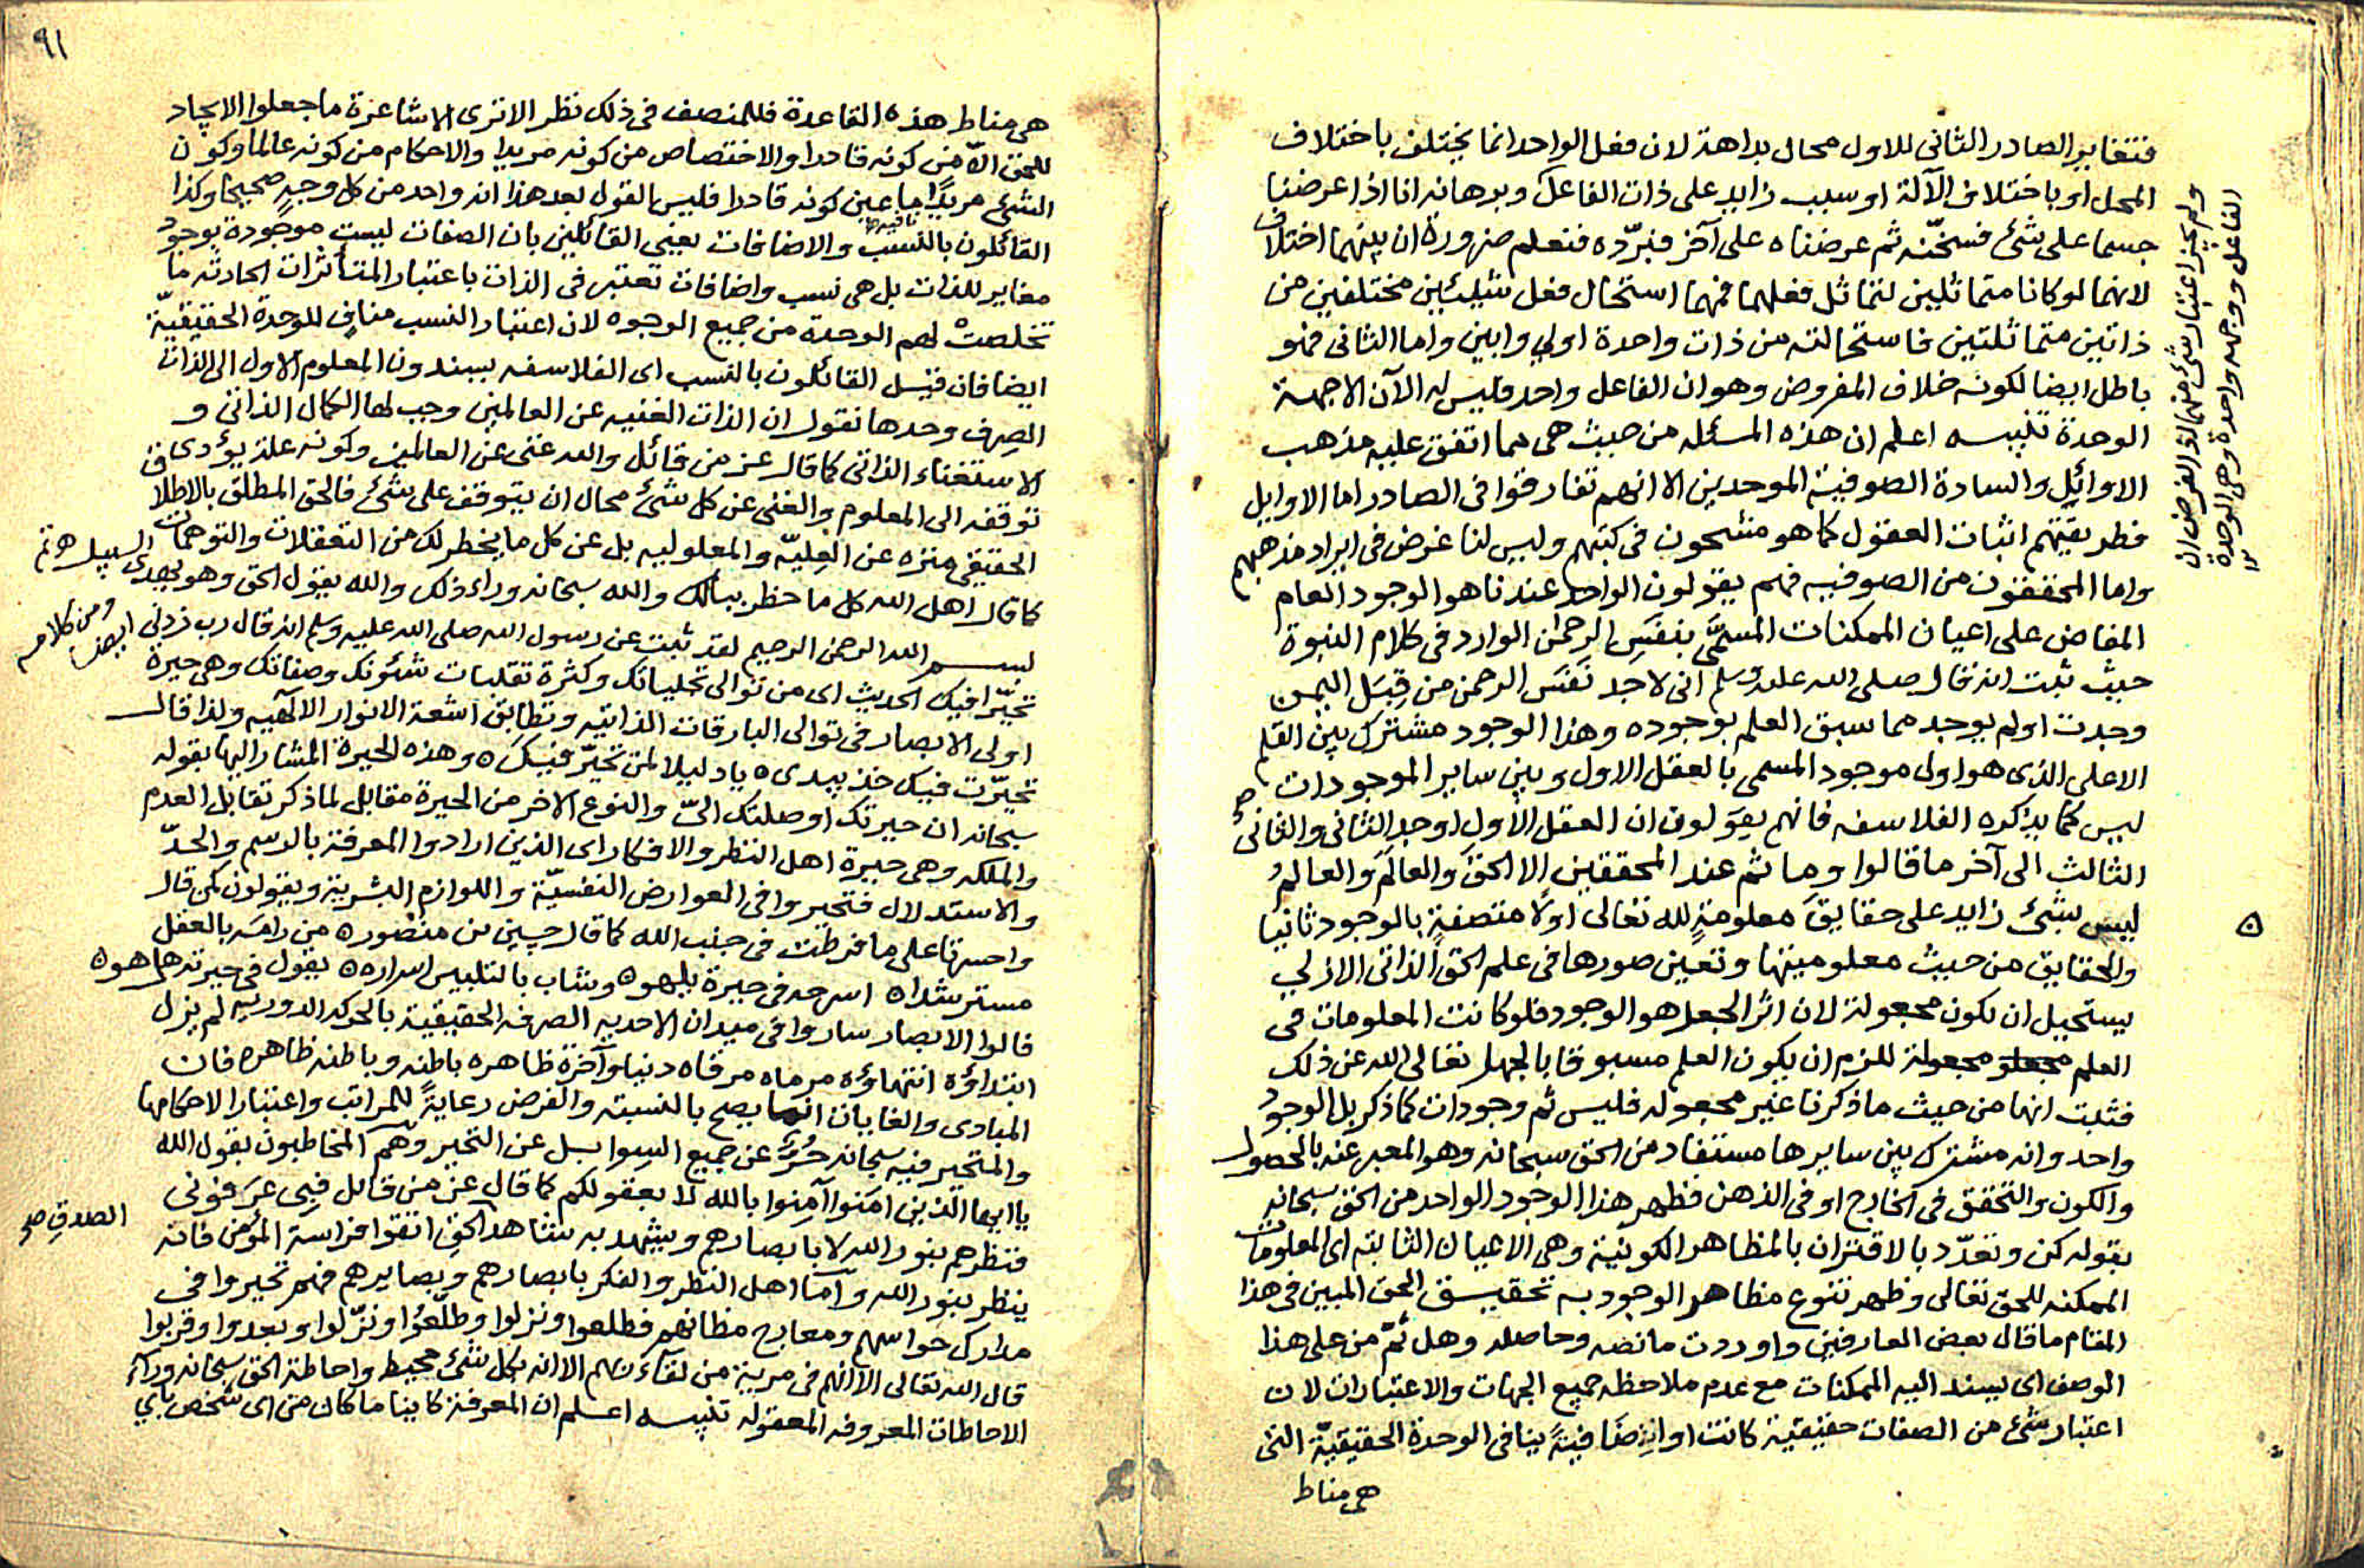 فتغاير الصادر الثاني للاول محال بداهة لان فعل الواحد انما يختلف باختلاف
المحل او باختلاف الآلة او سبب زايد على ذات الفاعل وبرهانه انا اذا عرضنا
جسما على شئ فسخّنه ثم عرضناه على آخر فبرّده فنعلم ضرورة ان بينهما اختلاف
لانهما لو كانا متماثلين لتماثل فعلهما فمهما استحال فعل شيئين مختلفين من
ذاتين متماثلتين فاستحالته من ذات واحدة اولى وابين واما الثاني فهو
باطل ايضا لكونه خلاف المفروض وهو ان الفاعل واحد وليس له الآن الا جهة
الوحدة تنبيه اعلم ان هذه المسئله من حيث هي مما اتفق عليه مذهب
الاوائل والسادة الصوفية الموحدين الا انهم تفارقوا في الصادر اما الاوايل
فطريقتهم اثبات العقول كما هو مشحون في كتبهم وليس لنا غرض في ايراد مذهبهم
واما المحققون من الصوفيه فهم يقولون الواحد عندنا هو الوجود العام
المفاض على اعيان الممكنات المسمَّى بنفَسِ الرحمٰن الوارد في كلام النبوة
حيث ثبت انه قال صلى الله عليه وسلم اني لاجد نَفَسَ الرحمن من قِبَل اليمن
وجدت او لم يوجد مما سبق العلم بوجوده وهذا الوجود مشترك بين القلم
الاعلى الذي هو اول موجود المسمى بالعقل الاول وبين ساير الموجودات
ليس كما يذكره الفلاسفه فانهم يقولون ان العقل الاول اوجد الثاني والثاني
الثالث الى آخر ما قالوا وما ثم عند المحققين الا الحق والعالَم والعالم
ليس بشئ زايد على حقايق معلومةٍ لله تعالى اولًا متصفةٍ بالوجود ثانيا
والحقايق من حيث معلوميتها وتعين صورها في علم الحق الذاتي الازلي
يستحيل ان تكون مجعولة لان اثر الجعل هو الوجود فلو كانت المعلومات في
العلم مجعولة للزم ان يكون العلم مسبوقا بالجهل تعالى الله عن ذلك
فثبت انها من حيث ما ذكرنا غير مجعوله فليس ثم وجودات كما ذكر بل الوجود
واحد وانه مشترك بين سايرها مستفاد من الحق سبحانه وهو المعبر عنه بالحصول
والكون والتحقق في الخارج او في الذهن فظهر هذا الوجود الواحد من الحق سبحانه
بقوله كن وتعدّد بالاقتران بالمظاهر الكونية وهي الاعيان الثابته اي المعلومات
الممكنه للحق تعالى وظهر تنوع مظاهر الوجود به تحقيق الحق المبين في هذا
المقام ما قال بعض العارفين واوردت ما نصه وحاصله وهل ثَمّ من على هذا
الوصف اي يسند اليه الممكنات مع عدم ملاحظه جميع الجهات والاعتبارات لان
اعتبار شئ من الصفات حقيقية كانت او اضافيةً ينافي الوحدة الحقيقيّة التي
هي مناط
ولم يجز اعتبار شئ منهما اذ الفرض ان
الفاعل ووجهه واحدة وهي الوحدة
٩١
هي مناط هذه القاعدة فللمنصف في ذلك نظر الا ترى الاشاعرة ما جعلوا الايجاد
للحق الّا من كونه قادرا والاختصاص من كونه مريدا والاحكام من كونه عالما وكون
الشئ مريدًا ما عين كونه قادرا فليس القول بعد هذا انه واحد من كل وجهٍ صحيحا وكذا
القائلون بالنسب والاضافات يعني القائلين بان الصفات ليست موجودة بوجود
مغاير للذات بل هي نسب واضافات تعتبر في الذات باعتبار المتأثرات الحادثه ما
تخلصت لهم الوحدة من جميع الوجوه لان اعتبار النسب منافٍ للوحدة الحقيقيّة
ايضا فان قيل القائلون بالنسب اي الفلاسفه يسندون المعلوم الاول الى الذات
الصِرف وحدها نقول ان الذات الغنيه عن العالمين وجب لها الكمال الذاتي و
الاستغناء الذاتي كما قال عز من قائل والله غني عن العالمين وكونه علة يؤدى
توقفه الى المعلوم والغني عن كل شئ محال ان يتوقف على شئ فالحق المطلق بالاطلاق
الحقيقي منزه عن العِليّه والمعلوليه بل عن كل ما يخطر لك من التعقلات والتوهمات
كما قال اهل الله كل ما خطر ببالك والله سبحانه وراء ذلك والله يقول الحق وهو يهدي السبيل تم
ومن كلامه ايضا
بسم الله الرحمن الرحيم لقد ثبت عن رسول الله صلى الله عليه وسلم انه قال رب زدني
تحيّرا فيك الحديث اي من توالي تجلياتك وكثرة تقلبات شئونك وصفاتك وهي حيرة
اولي الابصار في توالي البارقات الذاتيه وتطابق اشعة الانوار الالٓهيه ولذا قال
تحيّرت فيك خذ بيدي ه يا دليلا لمن تحيّر فيك ه وهذه الحيرة المشار اليها بقوله
سبحانه ان حيرتك اوصلتك الىّ والنوع الاخر من الحيرة مقابل لما ذكر تقابل العدم
والملكه وهي حيرة اهل النظر والافكار اي الذين ارادوا المعرفة بالرسم والحدّ
والاستدلال فتحيروا في العوارض النفسيّة واللوازم البشرية ويقولون كمن قال
واحسرتا على ما فرطت في جنب الله كما قال حسين بن منصور ه من رامَه بالعقل
مسترشدا ه اسرحه في حيرة يلهو ه وشاب بالتلبيس اسراره ه يقول في حيرته هل هو ه
قالوا الابصار ساروا في ميدان الاحديه الصرفه الحقيقية بالحركه الدوريه لم يزل
ابتداؤه انتهاؤه مرماه مرقاه دنياه وآخرة ظاهره باطنه وباطنه ظاهره فان
المبادي والغايات انما يصح بالنسبته والفرض رعايةً للمراتب واعتبارا لاحكامها
والمتحير فيه سبحانه حُرٌّ عن جميع السوابل عن التحير وهم المخاطبون بقول الله
يا ايها الذين امنوا آمِنوا بالله لا بعقولكم كما قال عز من قائل فبي عَرَفوني
فتظرهم بنور الله لا بابصارهم ويشهد به شاهد الحق اتقوا فراسة المؤمن فانه
الصدق صح
ينظر بنور الله وآمّا اهل النظر والفكر بابصارهم وبصايرهم فهم تحيروا في
مدارك حواسهم ومعارج مظانهم فطلعوا ونزلوا وطلّعوا ونزّلوا وبعدوا وقربوا
قال الله تعالى الا انهم في مرية من لقآء ربهم الا انه بكل شئ محيط واحاطة الحق سبحانه ورآء
الاحاطات المعروفه المعقوله تنبيه اعلم ان المعرفة كاينا ما كان من اي شخص باي